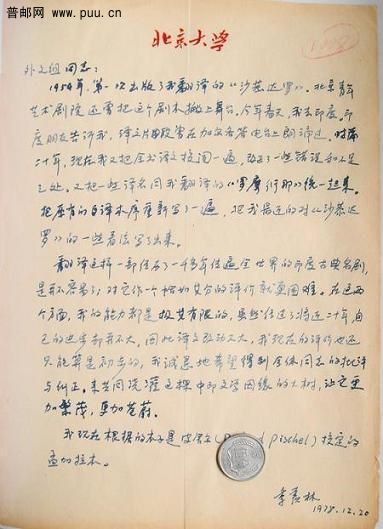 普邮网
www.puu.cn
北京大学
外文组同志:
1956年,第一次出版了我翻译的《沙恭达罗》。北京青年
艺术剧院还曾把这个剧本搬上舞台。今年春天,我去印度,印
度朋友告诉我,译文片段曾在加尔各答电台上朗诵过。时隔
二十年,现在我又把全书译文校阅一遍,改正了一些错误和不足
之处。又把一些译名同我翻译的《罗摩衍那》统一起来。
把原有的译本序重新写了一遍,把我最近的对《沙恭达
罗》的一些看法写了出来。
翻译这样一部流传了一千多年传遍全世界的印度古典名剧,
是并不容易;对它作一个恰如其分的评价就更困难。在这两
个方面,我的能力都是极其有限的,虽然经过了将近二十年,自
己的进步却并不大,因此译文改动不大,我现在的评价也还
只能算是初步的,我诚恳地希望得到全体同志的批评
与纠正,来共同浇灌这棵中印文学因缘的大树,让它更
加繁茂,更加苍蔚。
我现在根据的本子是 Pischel)校定的
孟加拉本。
季羡林
1978.12.20